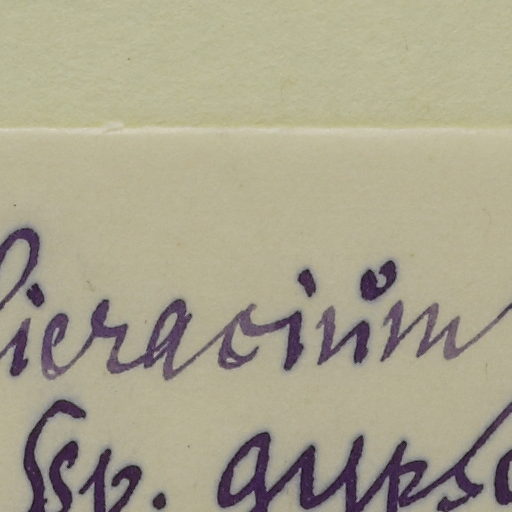 Hieraciům
Ssp. gypso